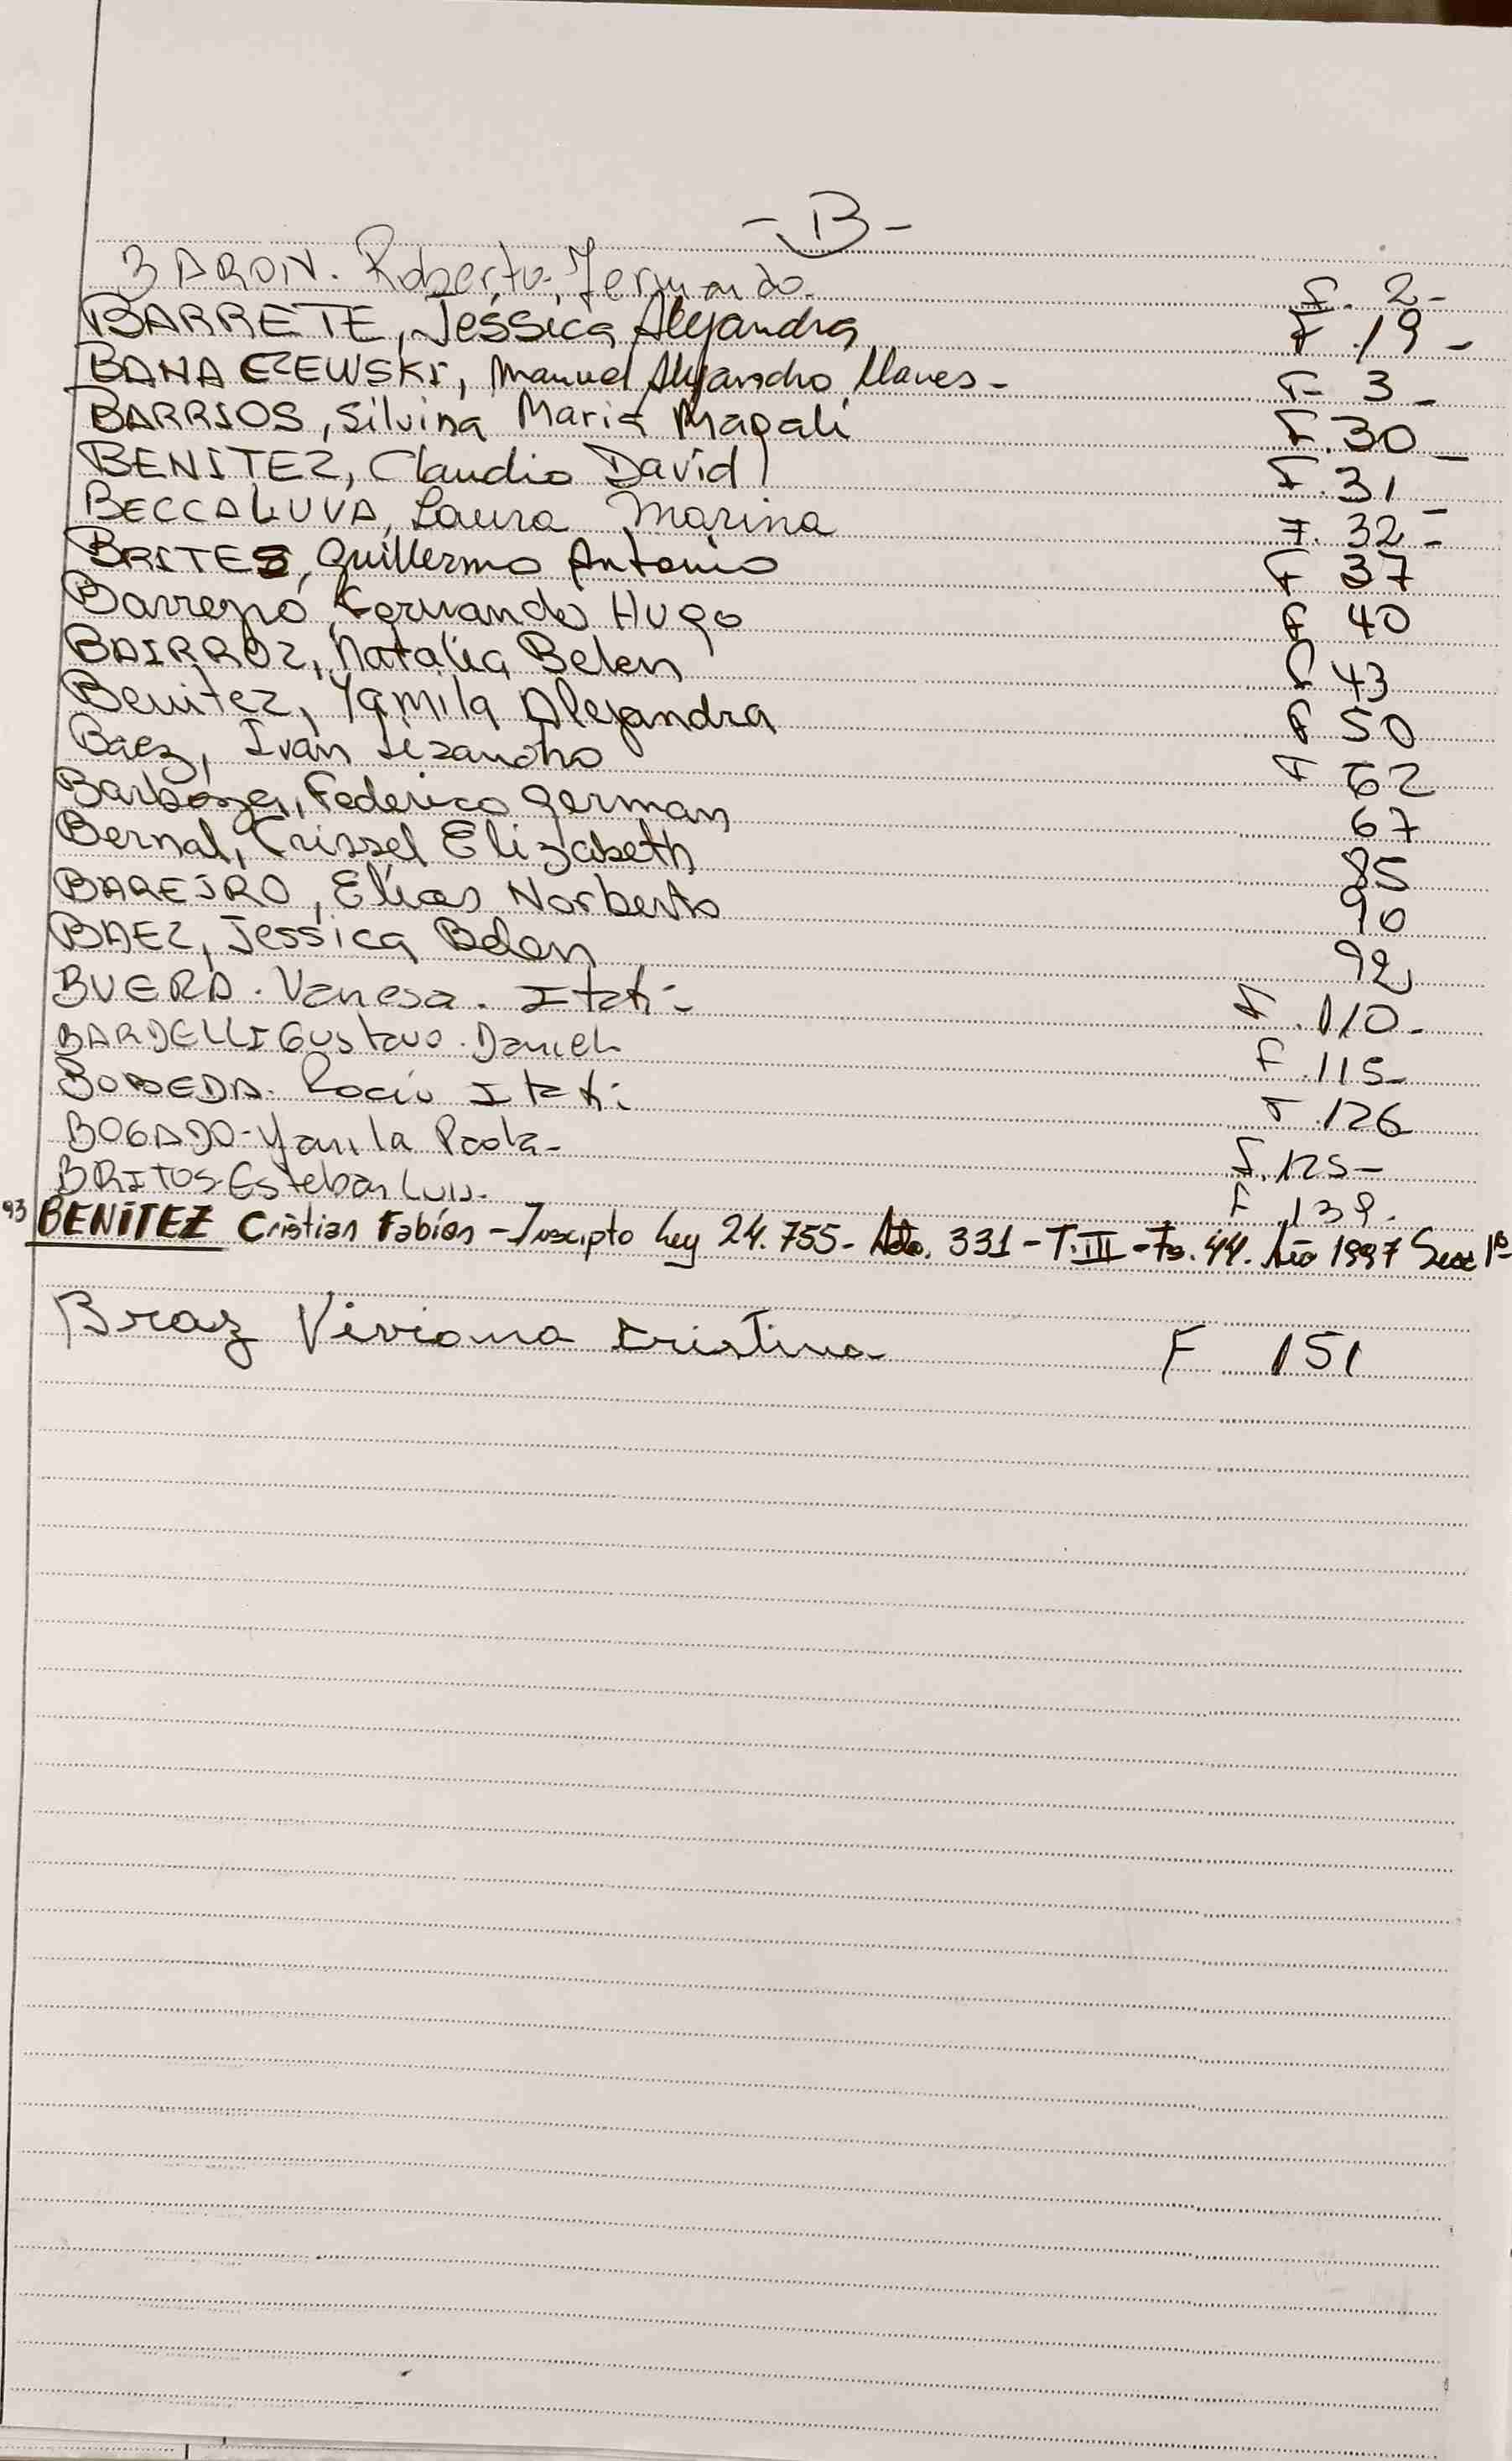 - B -
BARDIN. Roberto, Fernando. f. 2-
BARRETE, Jessica Alejandra F. 19-
BANACZEWSKI, Manuel Alejandro Nanes- F- 3-
BARRIOS, Silvina Maria Magali F. 30-
BENITEZ, Claudio David F. 31-
BECCALUVA, Laura Marina F. 32-
BRITEZ, Guillermo Antonio F 37
Barreno, Fernando Hugo F 40
BAIRROZ, Natalia Belen F 43
Benitez, Yamila Alejandra F 50
Baez, Ivan Lizandro F 62
Barboza, Federico German 67
Bernal, Crissel Elizabeth 85
BAREIRO, Elias Norberto 90
BAEZ, Jessica Belen 92
BUERA. Vanesa. Itati- F. 110-
BARDELLI Gustavo. Daniel F. 115-
BOBEDA. Rocio Itati. F. 126
BOGADO-Yanila Paola- F. 125-
BRITOS-Esteban Luis- F 139.
93 BENITEZ Cristian Fabián - Inscripto Ley 24.755- Acta. 331 - T.III - Fo. 44. Año 1997 Secc 1ª
Braz Viviana Cristina F 151